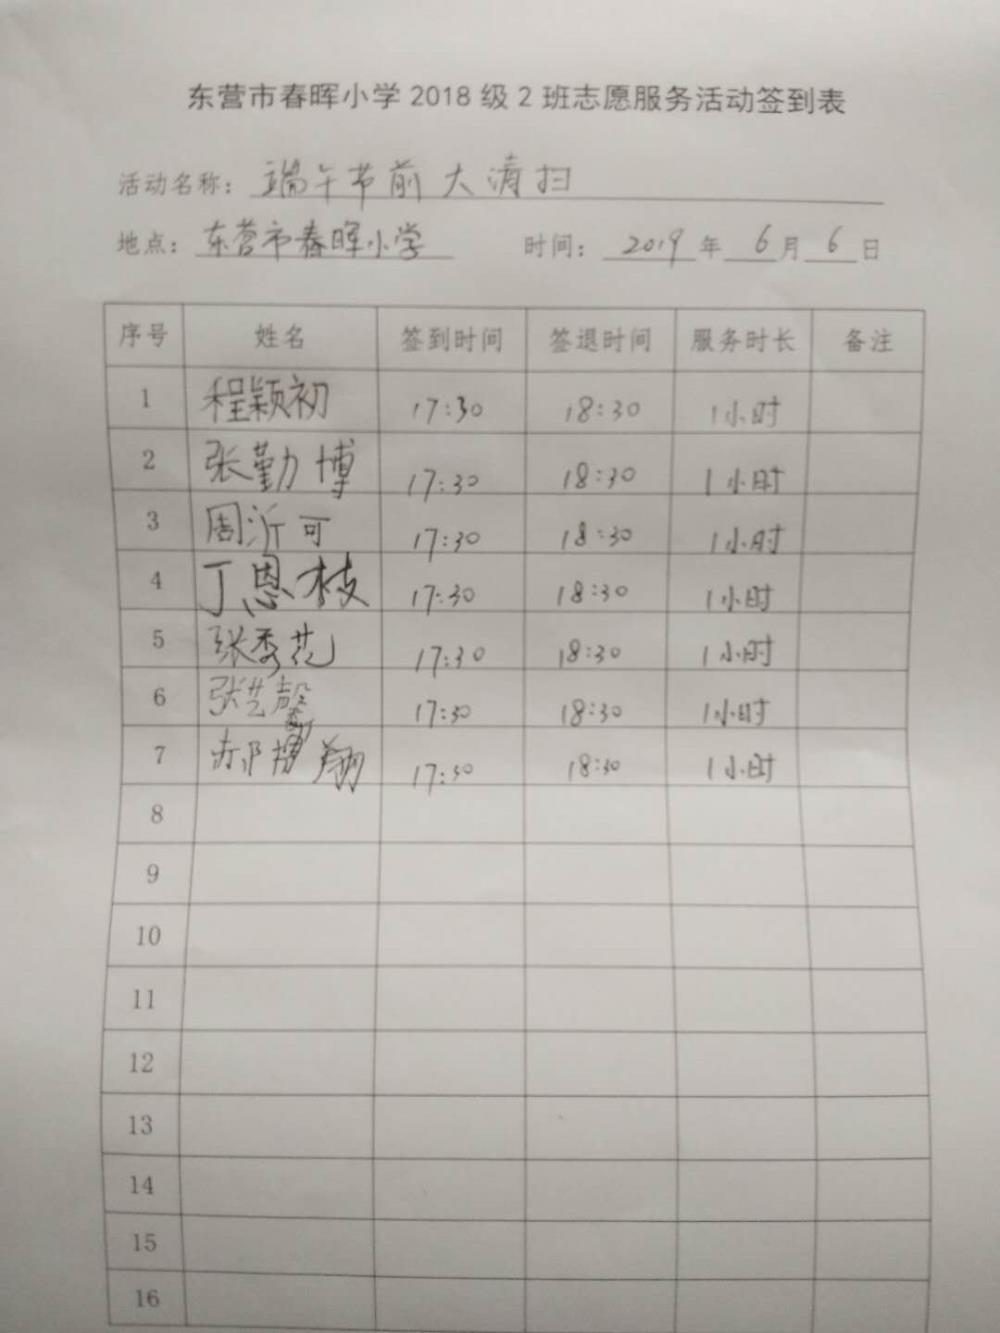 东营市春晖小学2018级2班志愿服务活动签到表
活动名称：端午节前大清扫
地点：东营市春晖小学 时间：2019年6月6日
序号 姓名 签到时间 签退时间 服务时长 备注
1 程颖初 17:30 18:30 1小时
2 张勤博 17:30 18:30 1小时
3 周沂可 17:30 18:30 1小时
4 丁恩枝 17:30 18:30 1小时
5 张秀花 17:30 18:30 1小时
6 张艺馨 17:30 18:30 1小时
7 郝博翔 17:30 18:30 1小时
8
9
10
11
12
13
14
15
16